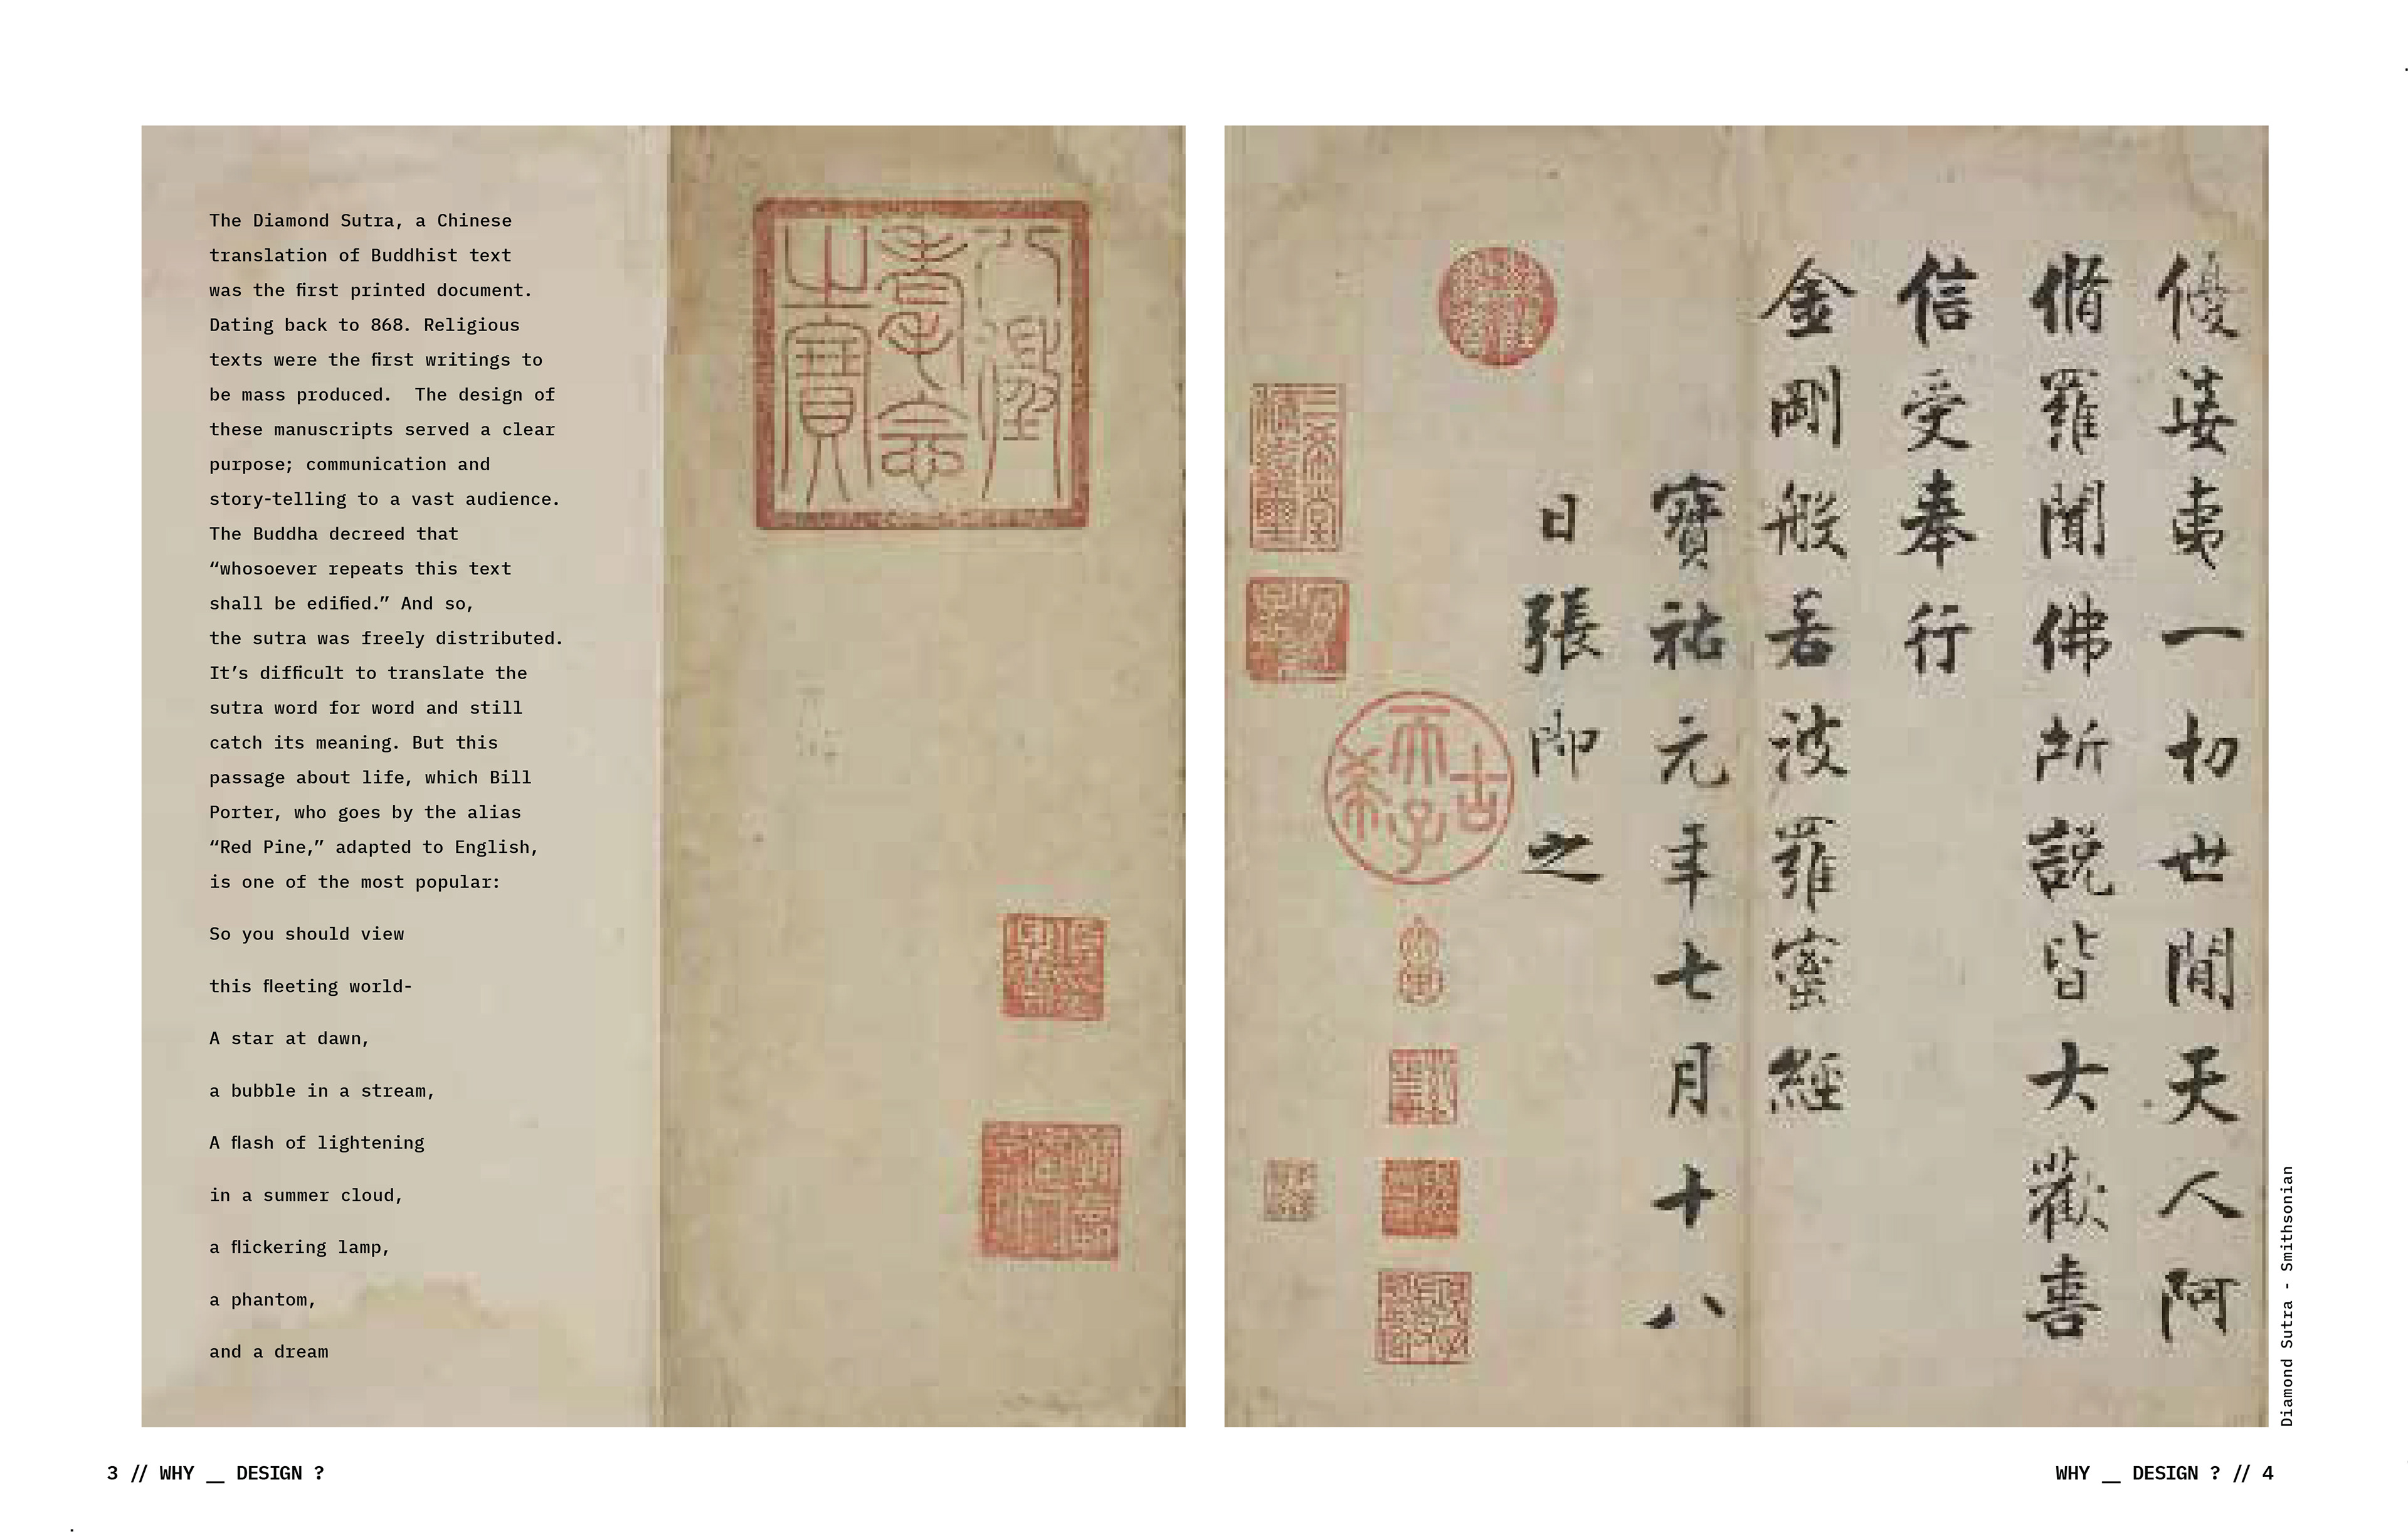 The Diamond Sutra, a Chinese
translation of Buddhist text
was the first printed document.
Dating back to 868. Religious
texts were the first writings to
be mass produced.  The design of
these manuscripts served a clear
purpose; communication and
story-telling to a vast audience.
The Buddha decreed that
“whosoever repeats this text
shall be edified.” And so,
the sutra was freely distributed.
It’s difficult to translate the
sutra word for word and still
catch its meaning. But this
passage about life, which Bill
Porter, who goes by the alias
“Red Pine,” adapted to English,
is one of the most popular:
So you should view
this fleeting world-
A star at dawn,
a bubble in a stream,
A flash of lightening
in a summer cloud,
a flickering lamp,
a phantom,
and a dream
優婆夷一切世間天人阿
脩羅聞佛所說皆大歡喜
信受奉行
金剛般若波羅蜜經
寶祐元年七月十八
日張即之
八徵
耄念
之寶
古希
天子
三希堂
精鑑璽
Diamond Sutra - Smithsonian
3 // WHY __ DESIGN ?
WHY __ DESIGN ? // 4